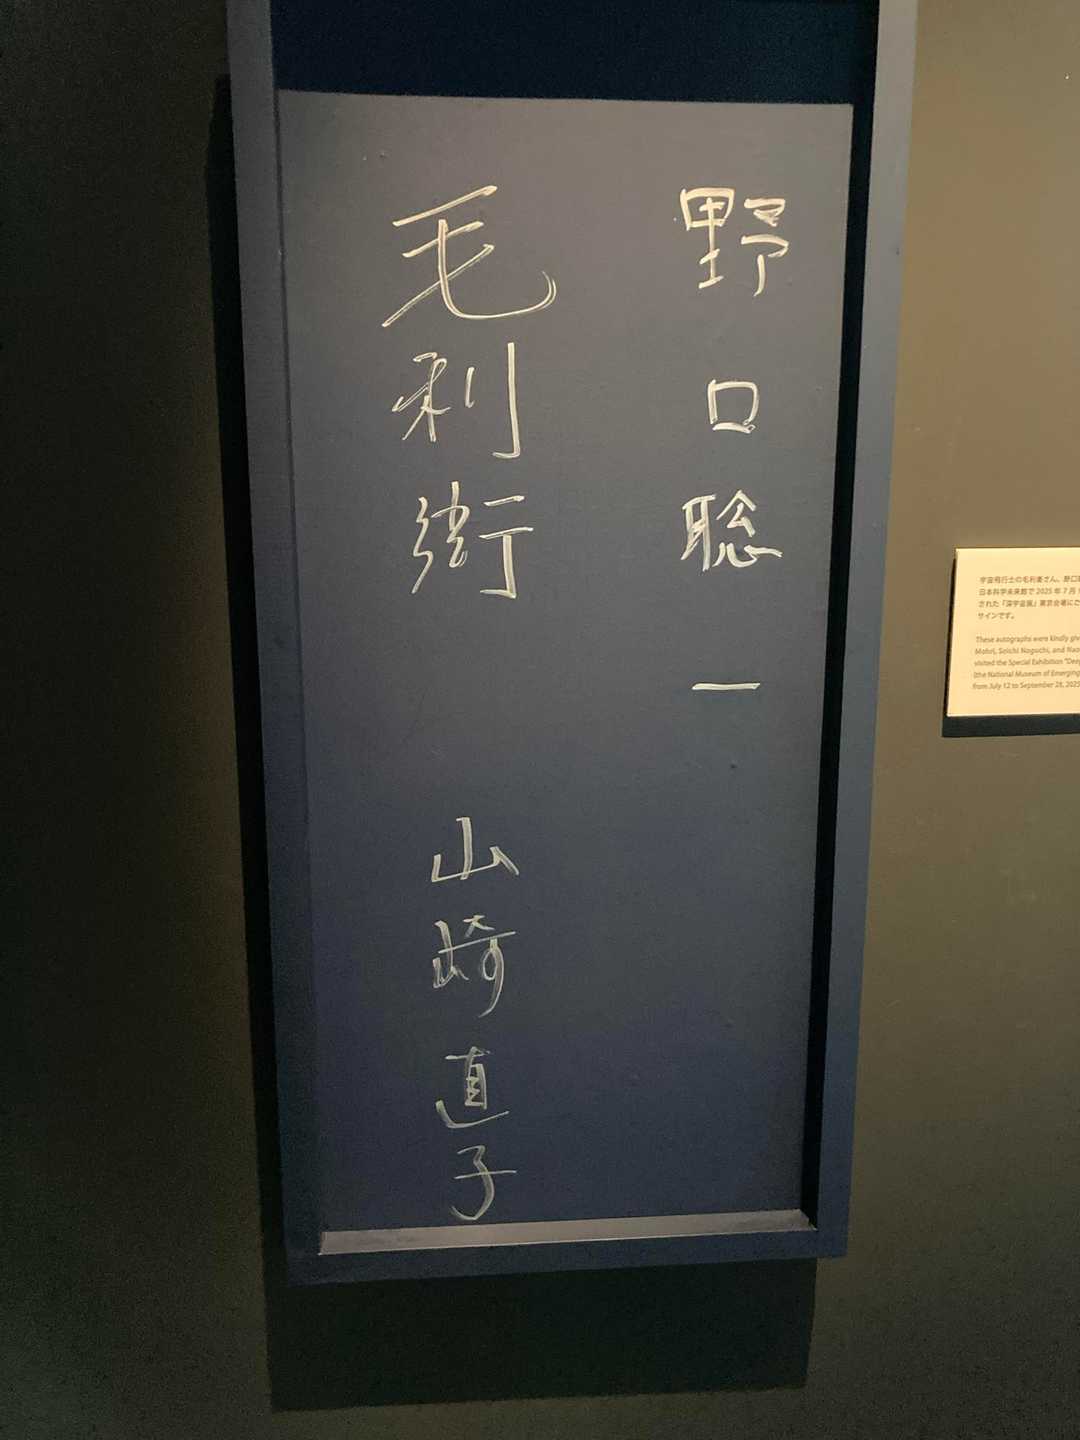 野口聡一
毛利衛
山崎直子
宇宙飛行士の毛利衛さん、野口
日本科学未来館で 2025 年 7 月
された「深宇宙展」東京会場にご
サインです。
These autographs were kindly giv
Mohri, Soichi Noguchi, and Nao
visited the Special Exhibition "Deep
(the National Museum of Emerging
from July 12 to September 28, 2025